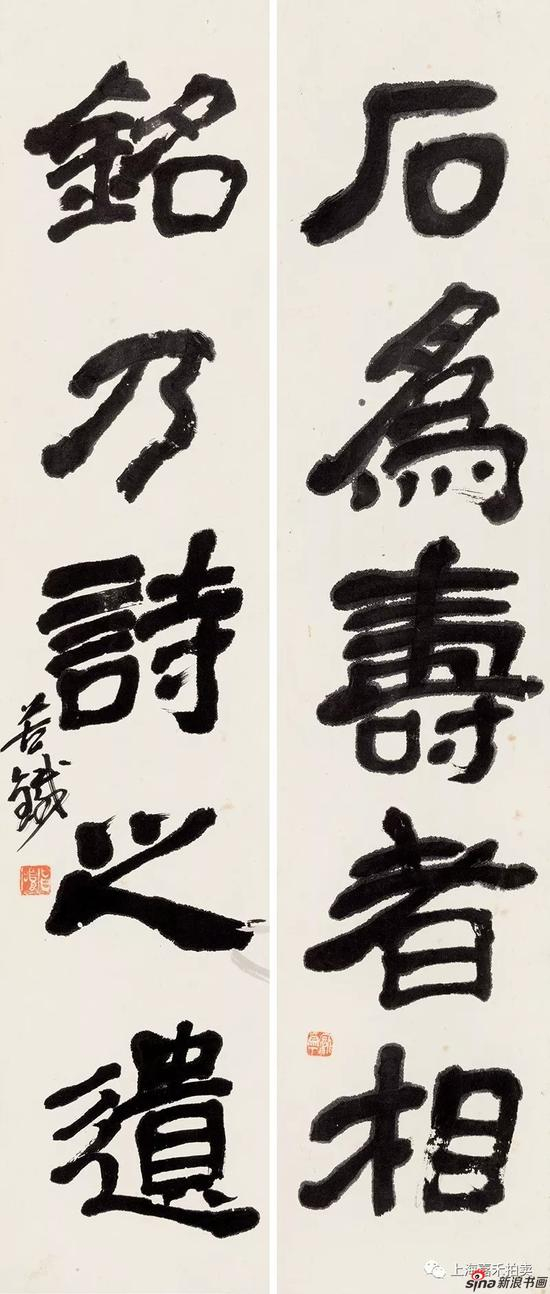 石為壽者相
銘乃詩之遺
苦鐵
上海嘉禾拍卖
sina新浪书画